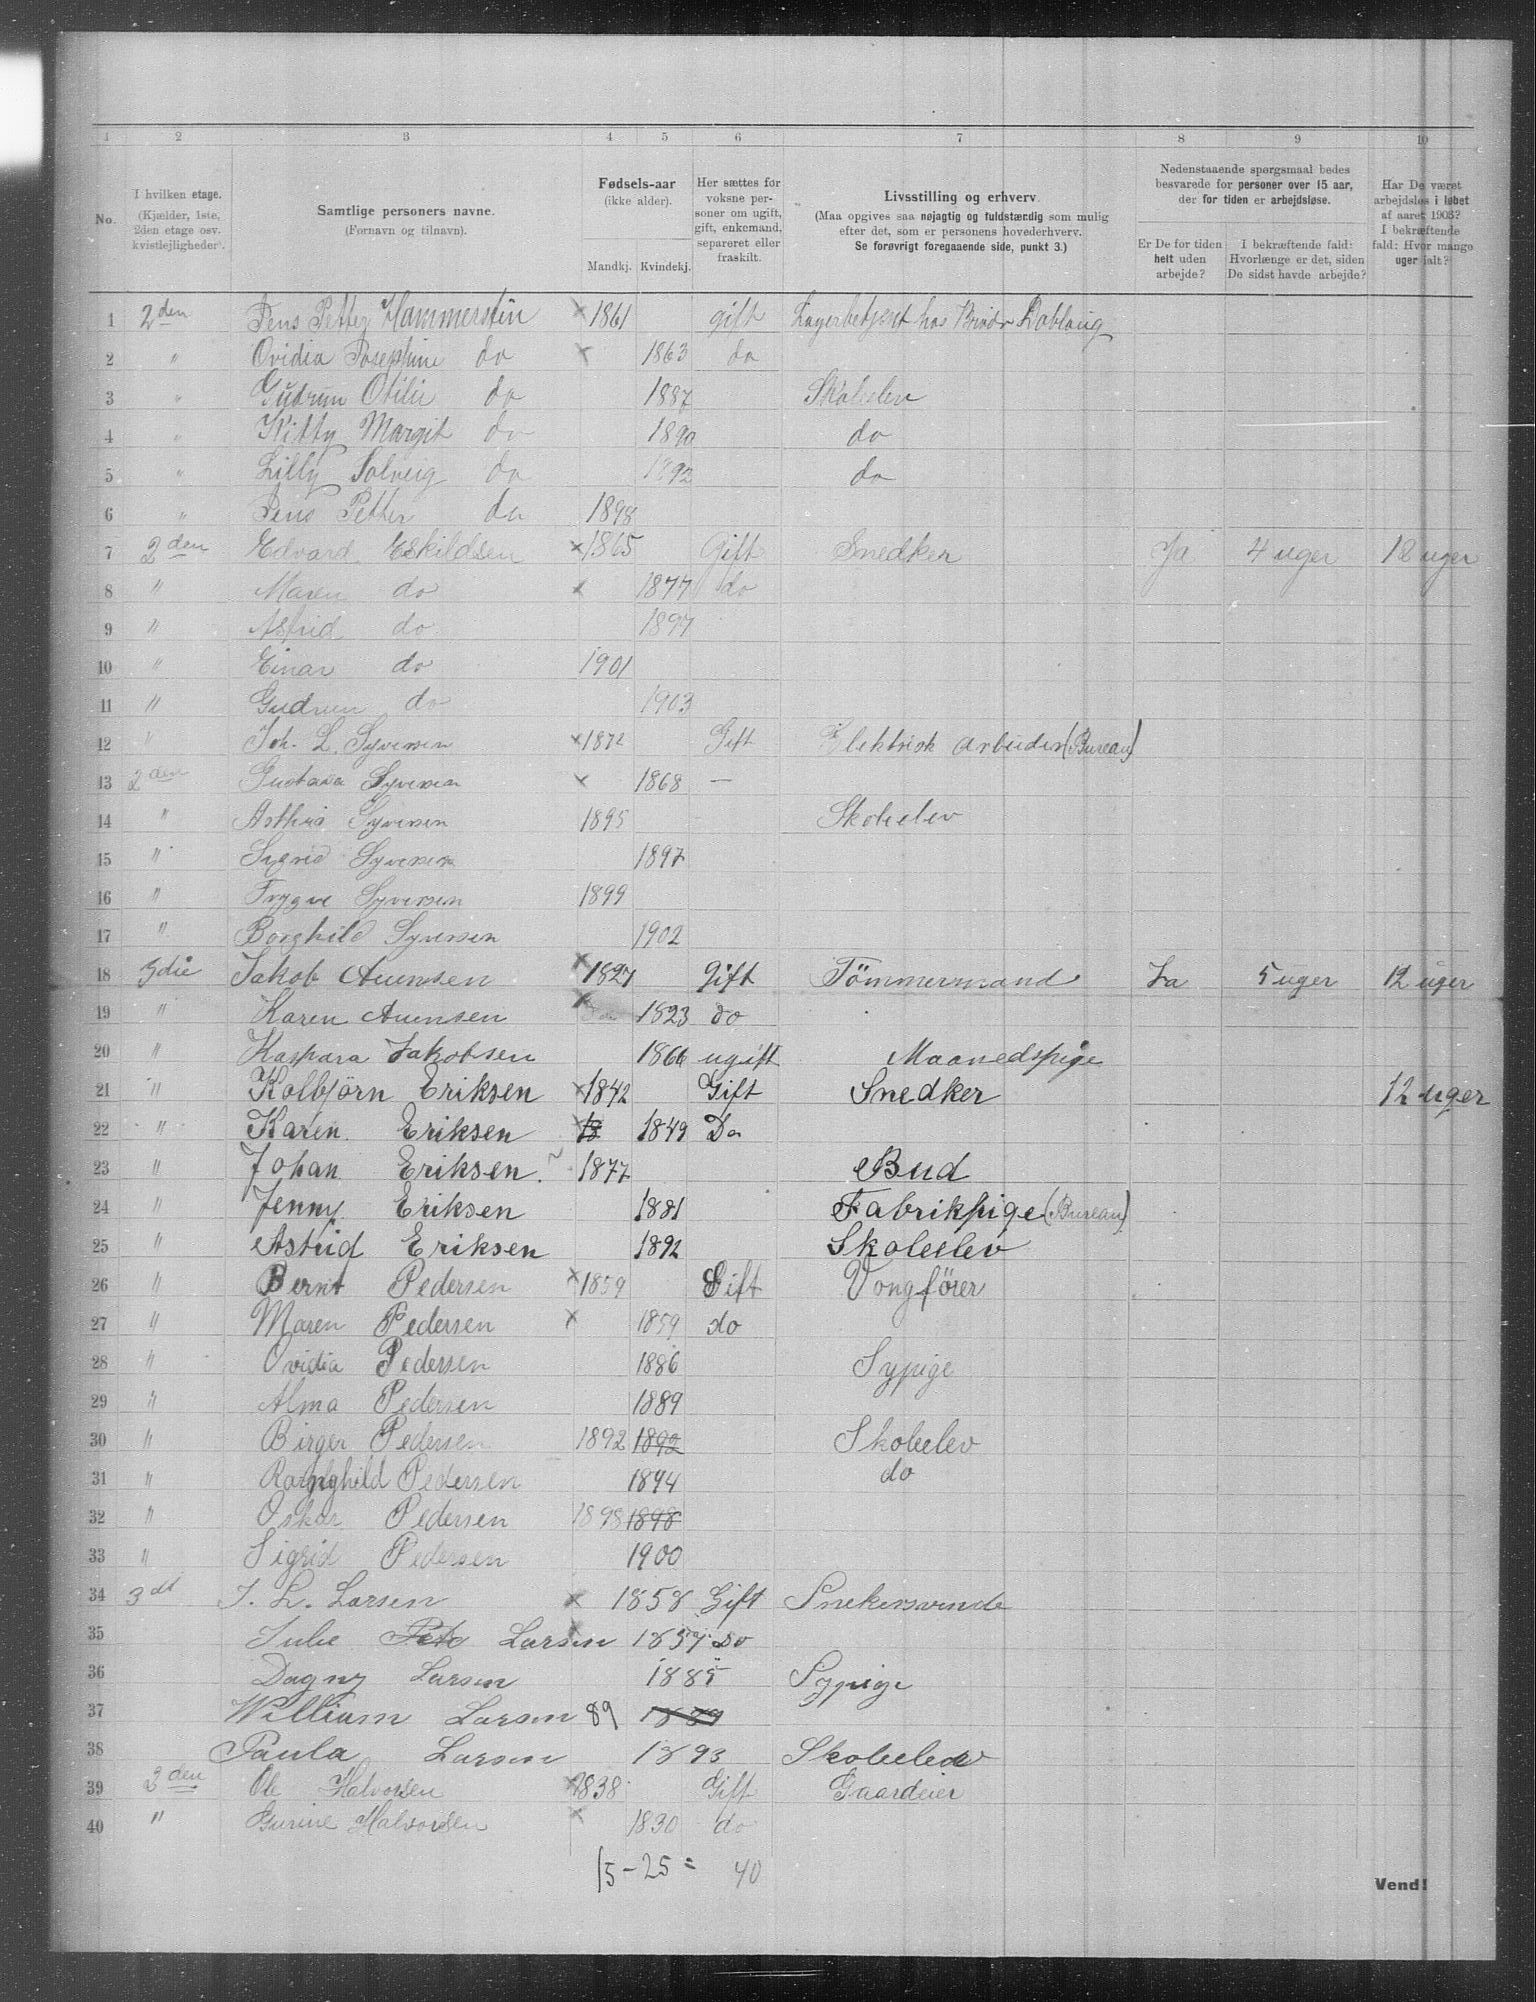 1 2 3 4 5 6 7 8 9 10
No.
I hvilken etage.
(Kjælder, 1ste,
2den etage osv.
kvistlejligheder.)
Samtlige personers navne.
(Fornavn og tilnavn).
Fødsels-aar
(ikke alder).
Mandkj. Kvindekj.
Her sættes før
voksne per-
soner om ugift,
gift, enkemand,
separeret eller
fraskilt.
Livsstilling og erhverv.
(Maa opgives saa nøjagtig og fuldstændig som mulig
efter det, som er personens hovederhverv.
Se forøvrigt foregaaende side, punkt 3.)
Nedenstaaende spørgsmaal bedes
besvarede for personer over 15 aar,
der for tiden er arbejdsløse.
Er De for tiden
helt uden
arbejde?
I bekræftende fald:
Hvorlænge er det, siden
De sidst havde arbejde?
Har De været
arbejdsløs i løbet
af aaret 1903?
I bekræftende
fald: Hvor mange
uger ialt?
1 2den Jens Petter Hammerstin × 1861 gift Lagerbetjent hos Brødr
2 " Ovidia Josephine do × 1863 do
3 " Gudrun Otilie do 1887 Skoleelev
4 " Kitty Margit do 1890 do
5 " Lilly Solveig do 1892 do
6 " Jens Petter do 1898
7 2den Edvard Eskildsen × 1865 Gift Snedker Ja 4 uger 18 uger
8 " Maren do × 1877 do
9 " Astrid do 1897
10 " Einar do 1901
11 " Gudrun do 1903
12 " Joh. L. Syversen × 1872 Gift Elektrisk arbeider (Bureau)
13 2den Gustava Syversen × 1868 —
14 " Arthur Syversen 1895 Skoleelev
15 " Sigrid Syversen 1897
16 " Trygve Syversen 1899
17 " Borghild Syversen 1902
18 3die Jakob Auensen × 1827 Gift Tömmermand Ja 5 uger 12 uger
19 " Karen Auensen × 1823 do
20 " Kaspara Jakobsen 1866 ugift Maanedspige
21 " Kolbjörn Eriksen × 1842 Gift Snedker 12 uger
22 " Karen Eriksen × 18 1849 Do
23 " Johan Eriksen. 1877 Bud
24 " Jenny Eriksen 1881 Fabrikpige (Bureau)
25 " Astrid Eriksen 1892 Skoleelev
26 " Bernt Pedersen × 1859 Gift Vongförer
27 " Maren Pedersen × 1859 do
28 " Ovidia Pedersen 1886 Sypige
29 " Alma Pedersen 1889
30 " Birger Pedersen 1892 1892 Skoleelev
31 " Ragnghild Pedersen 1894 do
32 " Oskar Pedersen 1898 1898
33 " Sigrid Pedersen 1900
34 3dt J. L. Larsen × 1858 Gift Snekersvende
35 Julie Larsen × 1859 Do
36 Dagny Larsen 1885 Sypige
37 William Larsen 89 1889
38 Paula Larsen 1893 Skoleelev
39 2den Ole Halvorsen × 1838 Gift Gaardeier
40 " Gurine Halvorsen × 1830 do
15 – 25 = 40
Vend!